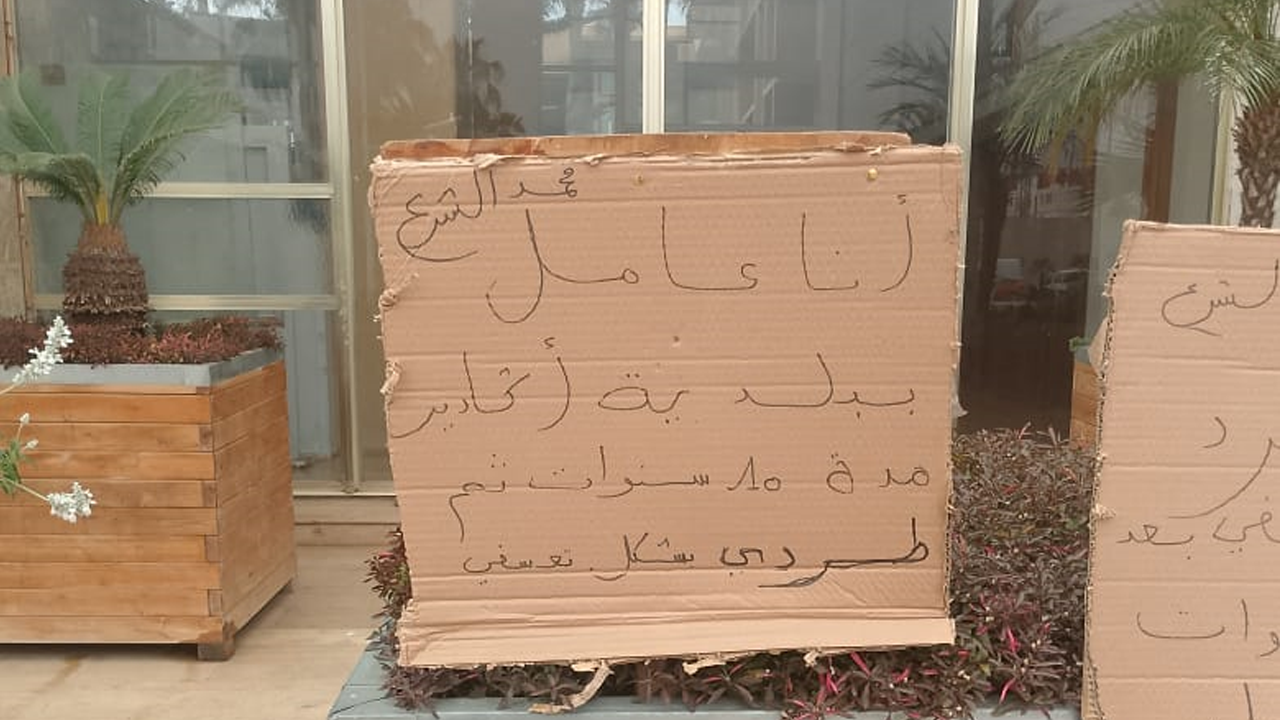 محمد الشرع
أنا عامل
ببلدية أكادير
مدة 10 سنوات تم
طردي بشكل تعسفي
الشرع
د
بعد